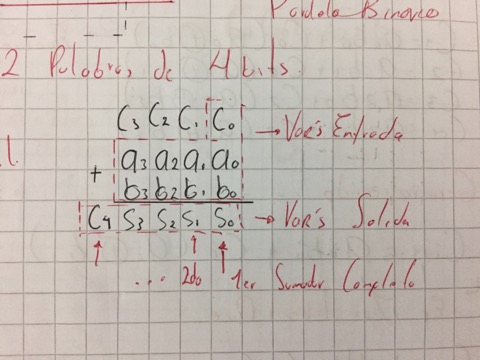 Paralelo Binario
2 Palabras de 4 bits.
C₃ C₂ C₁ C₀ → Var's Entrada
1.
+ a₃ a₂ a₁ a₀
b₃ b₂ b₁ b₀
C₄ S₃ S₂ S₁ S₀ → Var's Salida
... 2do 1er Sumador Completo